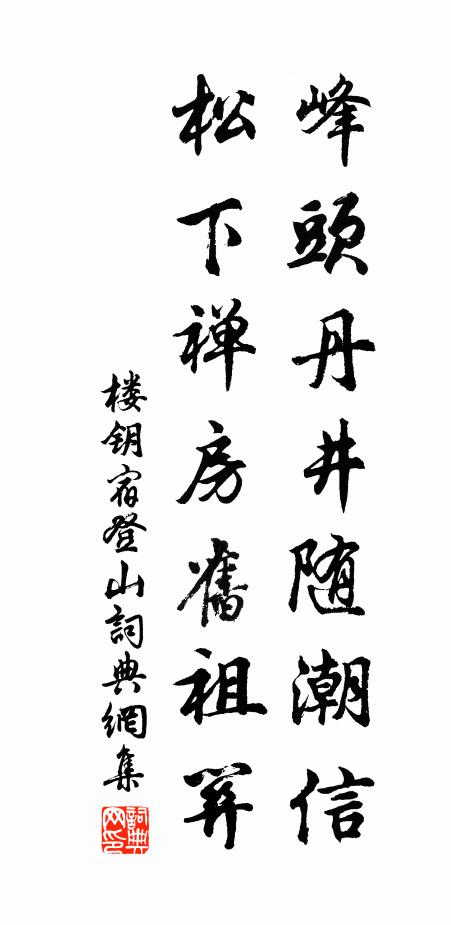 峰頭丹井随潮信
松下禅房舊祖關
楼钥宿登山詞典網集
詞典网印